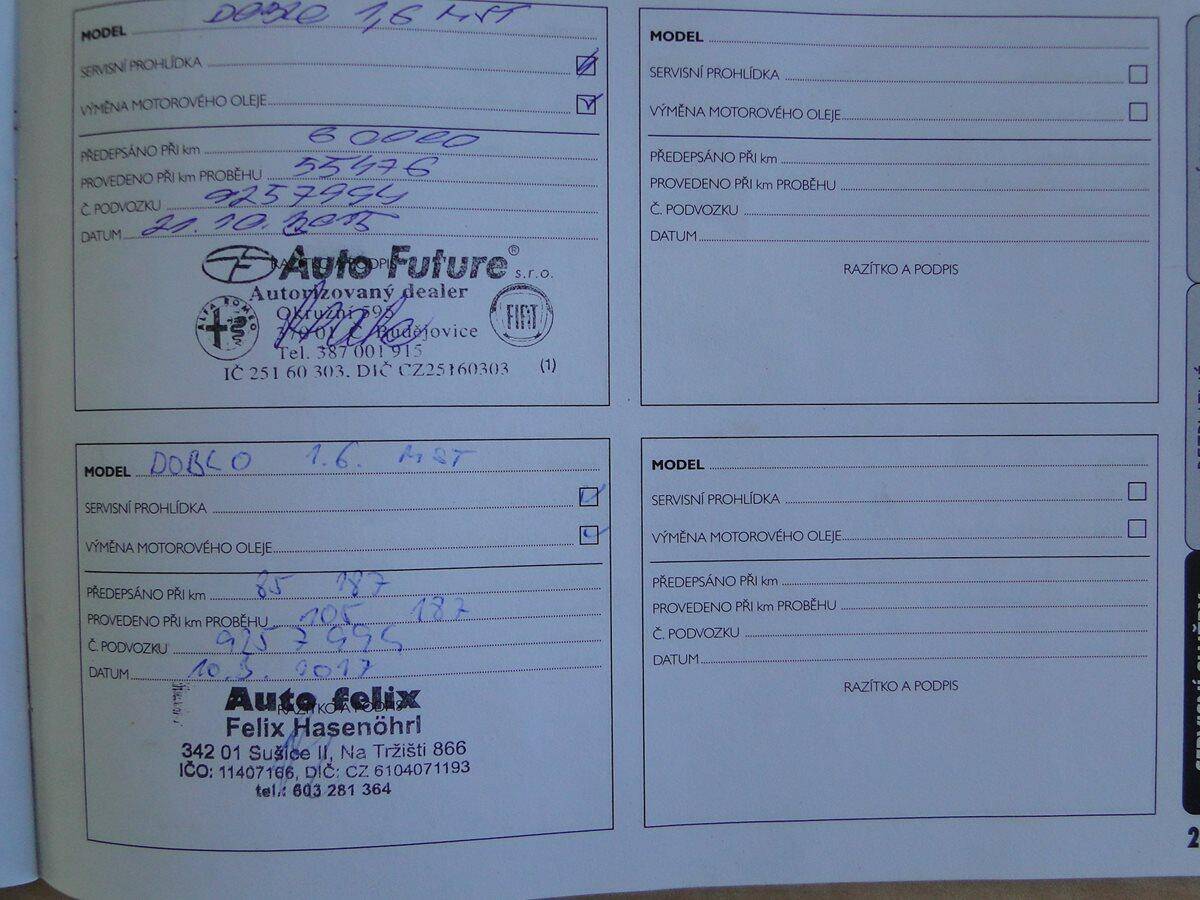 MODEL DOBLO 1,6 MST
SERVISNÍ PROHLÍDKA
VÝMĚNA MOTOROVÉHO OLEJE
PŘEDEPSÁNO PŘI km 60000
PROVEDENO PŘI km PROBĚHU 55476
Č. PODVOZKU 9257994
DATUM 21.10.2015
RAZÍTKO A PODPIS
Auto Future® s.r.o.
Autorizovaný dealer
ALFA ROMEO
Okružní 595
FIAT
370 01 Č. Budějovice
Tel. 387 001 915
IČ 251 60 303, DIČ CZ25160303 (1)
MODEL DOBLO 1.6. MST
SERVISNÍ PROHLÍDKA
VÝMĚNA MOTOROVÉHO OLEJE
PŘEDEPSÁNO PŘI km 85 187
PROVEDENO PŘI km PROBĚHU 105 187
Č. PODVOZKU 9257994
DATUM 10.3. 2017
RAZÍTKO A PODPIS
Auto felix
Felix Hasenöhrl
342 01 Sušice II, Na Tržišti 866
IČO: 11407166, DIČ: CZ 6104071193
tel.: 603 281 364
MODEL
SERVISNÍ PROHLÍDKA
VÝMĚNA MOTOROVÉHO OLEJE
PŘEDEPSÁNO PŘI km
PROVEDENO PŘI km PROBĚHU
Č. PODVOZKU
DATUM
RAZÍTKO A PODPIS
MODEL
SERVISNÍ PROHLÍDKA
VÝMĚNA MOTOROVÉHO OLEJE
PŘEDEPSÁNO PŘI km
PROVEDENO PŘI km PROBĚHU
Č. PODVOZKU
DATUM
RAZÍTKO A PODPIS
2